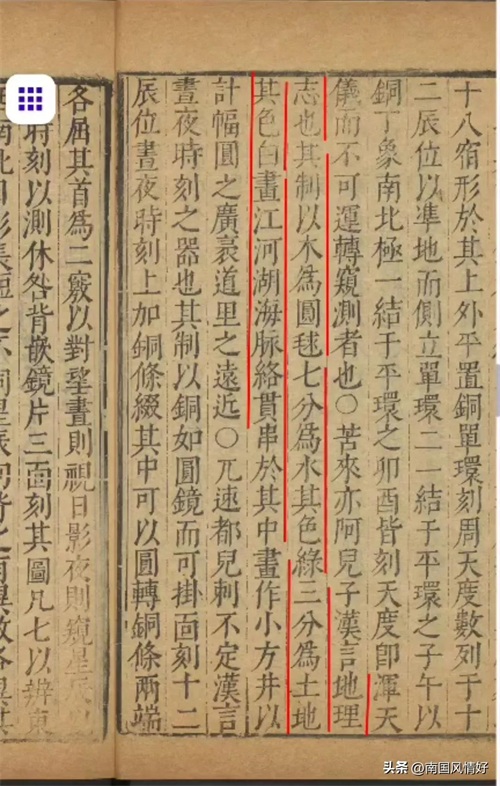 十八宿形於其上外平置銅單環刻周天度數列于十
二辰位以凖地而側立單環二一結于平環之子午以
銅丁象南北極一結于平環之卯酉皆刻天度卽渾天
儀而不可運轉窺測者也〇苦來亦阿兒子漢言地理
志也其制以木為圓毬七分為水其色綠三分為土地
其色白畫江河湖海脉絡貫串於其中畫作小方井以
計幅圓之廣袤道里之遠近〇兀速都兒剌不定漢言
晝夜時刻之器也其制以銅如圓鏡而可掛面刻十二
辰位晝夜時刻上加銅條綴其中可以圓轉銅條兩端
各屈其首為二竅以對望晝則視日影夜則窺星辰以
時刻以測休咎背嵌鏡片三面刻其圖凡七以辨東
南北日影長短之不同星辰向背之有異故各異其
头条 @南国风情好